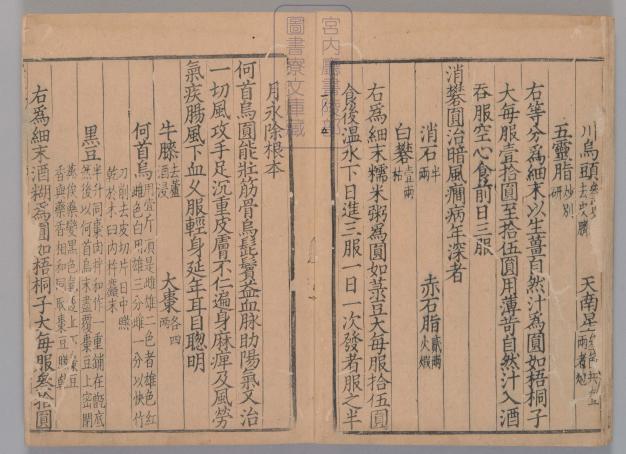 川烏頭
去皮臍
天南星
五靈脂
別研
右等分爲細末以生薑自然汁爲圓如梧桐子
大每服壹拾圓至拾伍圓用薄苛自然汁入酒
吞服空心食前日三服
消礬圓治暗風癎病年深者
消石半兩
赤石脂貳兩火煅
白礬壹兩枯
右爲細末糯米粥爲圓如菉豆大每服拾伍圓
食後溫水下日進三服一日一次發者服之半
月永除根本
何首烏圓能壯筋骨烏髭鬢益血脉助陽氣又治
一切風攻手足沉重皮膚不仁遍身麻痺及風勞
氣疾腸風下血久服輕身延年耳目聰明
牛膝去蘆酒浸
大棗各四兩
何首烏用壹斤須是雌雄二色者雄色紅
雌色白用雄三分雌一分以快竹
刀削去皮切片日中㬠
乾於木臼内杵
黑豆半升同棗肉
然後以何首烏末盡覆棗豆上密閉
右爲細末酒糊爲圓如梧桐子大每服叁拾圓
宮内廳書陵部
圖書寮文庫藏